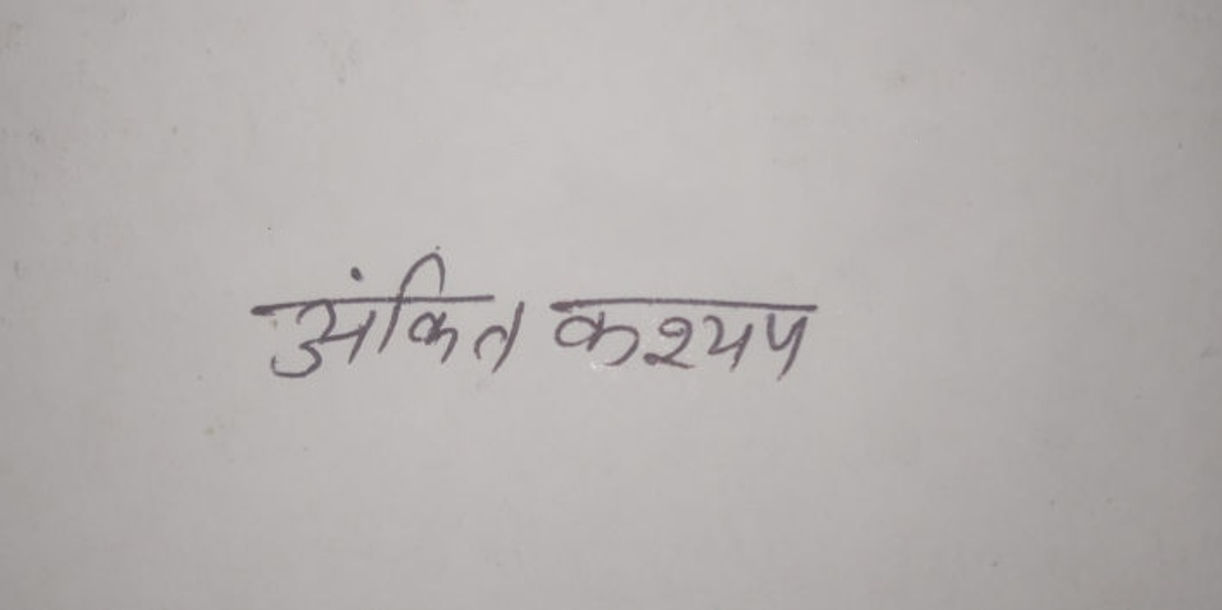 अंकित कश्यप